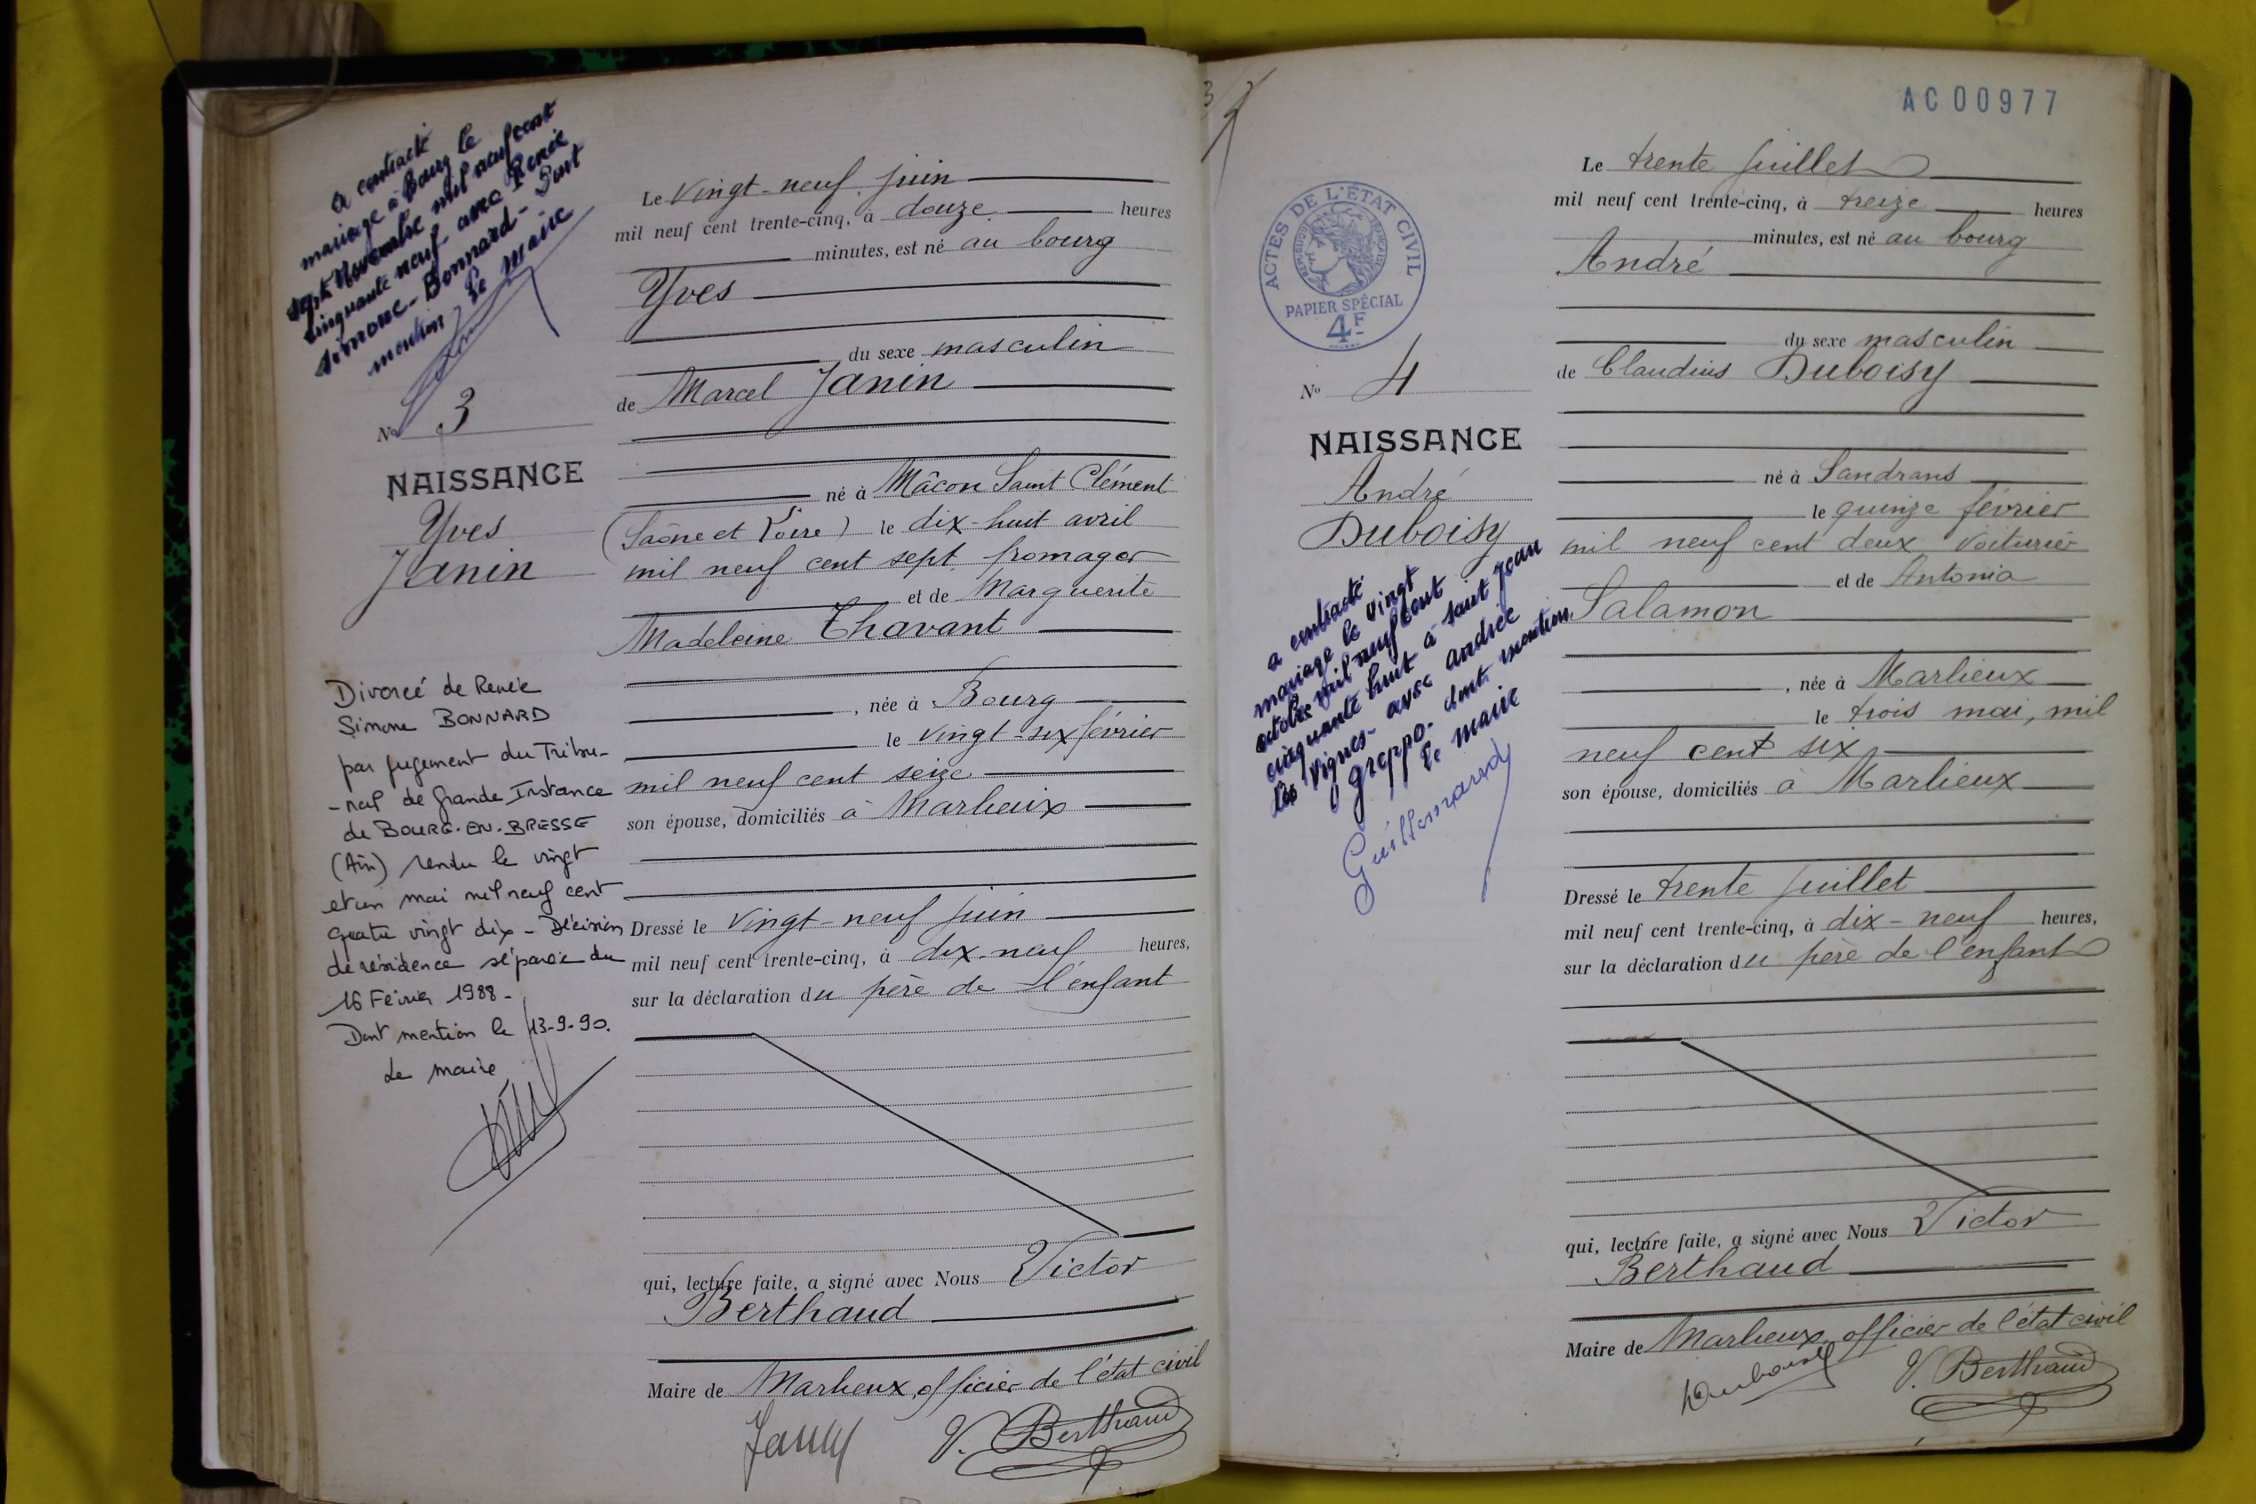 a contracté
mariage à Bourg le
sept Novembre mil neuf cent
cinquante neuf avec Renée
Simone - Bonnard - Dont
mention Le Maire
No 3
NAISSANCE
Yves
Janin
Divorcé de Renée
Simone BONNARD
par jugement du Tribu-
-nal de Grande Instance
de BOURG-EN-BRESSE
(Ain) rendu le vingt
et un mai mil neuf cent
quatre vingt dix - Décision
de résidence séparée du
16 Février 1988 -
Dont mention le 13-9-90.
Le maire
Le vingt-neuf juin
mil neuf cent trente-cinq, à douze heures
minutes, est né au bourg
Yves
du sexe masculin
de Marcel Janin
né à Mâcon Saint Clément
(Saône et Loire) le dix-huit avril
mil neuf cent sept fromager
et de Marguerite
Madeleine Thavant
, née à Bourg
le vingt-six février
mil neuf cent seize
son épouse, domiciliés à Marlieux
Dressé le vingt-neuf juin
mil neuf cent trente-cinq, à dix-neuf heures,
sur la déclaration du père de l'enfant
qui, lecture faite, a signé avec Nous Victor
Berthaud
Maire de Marlieux, officier de l'état civil
Janin V. Berthaud
3
AC00977
ACTES DE L'ÉTAT CIVIL
RÉPUBLIQUE FRANÇAISE
PAPIER SPÉCIAL
4F
No 4
NAISSANCE
André
Duboisy
a contracté
mariage le vingt
octobre mil neuf cent
cinquante huit à Saint Jean
les Vignes - avec Andrée
Greppo. dont mention
Le Maire
Guillemard
Le trente juillet
mil neuf cent trente-cinq, à treize heures
minutes, est né au bourg
André
du sexe masculin
de Claudius Duboisy
né à Sandrans
le quinze février
mil neuf cent deux voiturier
et de Antonia
Salamon
, née à Marlieux
le trois mai, mil
neuf cent six
son épouse, domiciliés à Marlieux
Dressé le trente juillet
mil neuf cent trente-cinq, à dix-neuf heures,
sur la déclaration du père de l'enfant
qui, lecture faite, a signé avec Nous Victor
Berthaud
Maire de Marlieux, officier de l'état civil
Duboisy V. Berthaud